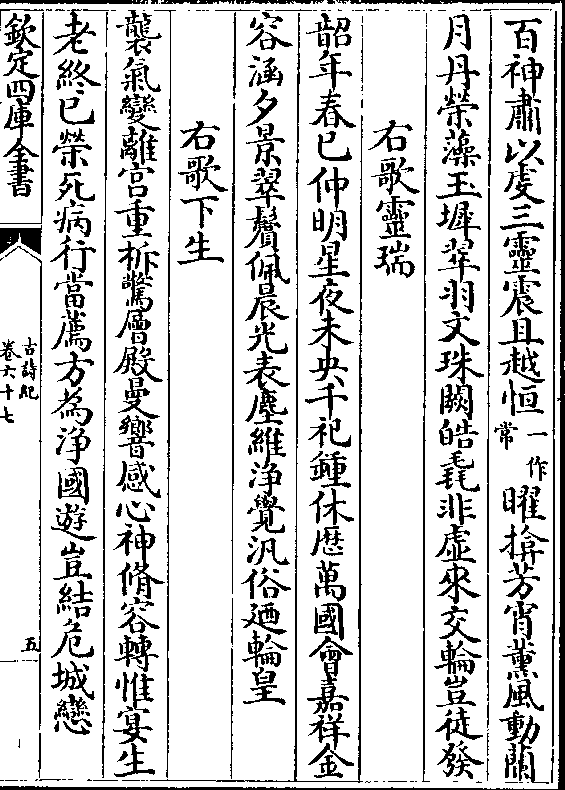 百神肅以䖍三靈震且越恒一作常曜揜芳宵薰風動蘭
月丹榮藻玉墀翠羽文珠闕皓毳非虛來交輪豈徒發
右歌靈瑞
韶年春已仲明星夜未央千祀鍾休厯萬國會嘉祥金
容涵夕景翠鬢佩晨光表塵維淨覺汎俗廼輪皇
右歌下生
襲氣變離宮重柝驚層殿曼響感心神脩容轉惟宴生
老終已縈死病行當薦方為淨國遊豈結危城戀
欽定四庫全書
古詩紀
卷六十七
五